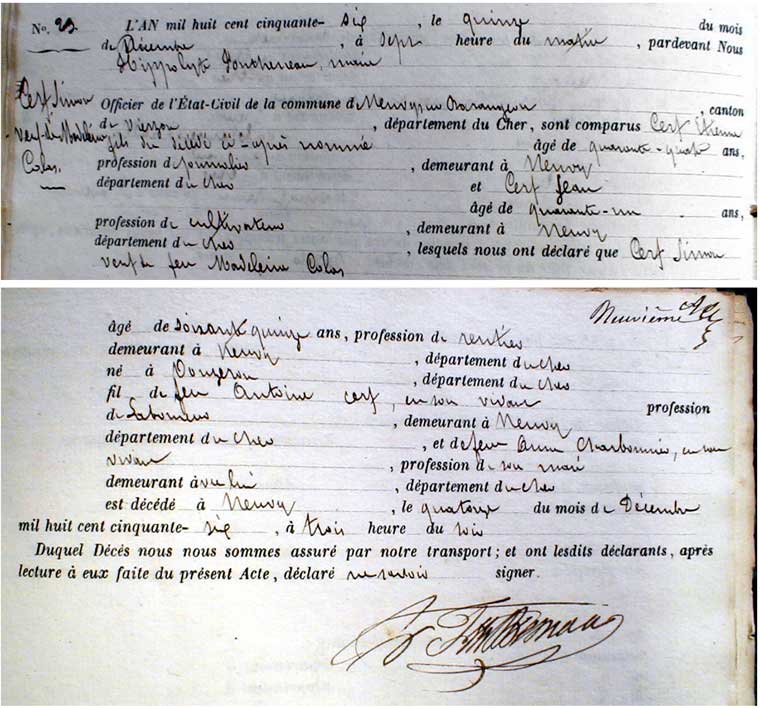 No. 23
L'AN mil huit cent cinquante- six , le quinze du mois
de Décembre , à sept heure du matin , pardevant Nous
Hippolyte maire
Cerf Simon
veuf de Madeleine
Colas
Officier de l'État-Civil de la commune d Neuvy sur Barangeon , canton
de Vierzon , département du Cher, sont comparus Cerf Etienne
fils du décédé ci-après nommé âgé de quarante-quatre ans,
profession de journalier , demeurant à Neuvy
département du cher et Cerf Jean
âgé de quarante-un ans,
profession de cultivateur , demeurant à Neuvy
département du cher , lesquels nous ont déclaré que Cerf Simon
veuf de feu Madeleine Colas
Neuvième
âgé de soixante quinze ans, profession de rentier
demeurant à Neuvy , département du cher
né à Vouzeron , département du cher
fil de feu Antoine cerf, en son vivant profession
de Laboureur , demeurant à Neuvy
département du cher , et de feue Anne Charbonnier, en son
vivant , profession de son mari
demeurant avec lui , département du cher
est décédé à Neuvy , le quatorze du mois de Décembre
mil huit cent cinquante- six , à trois heure du soir
Duquel Décès nous nous sommes assuré par notre transport; et ont lesdits déclarants, après
lecture à eux faite du présent Acte, déclaré ne savoir signer.